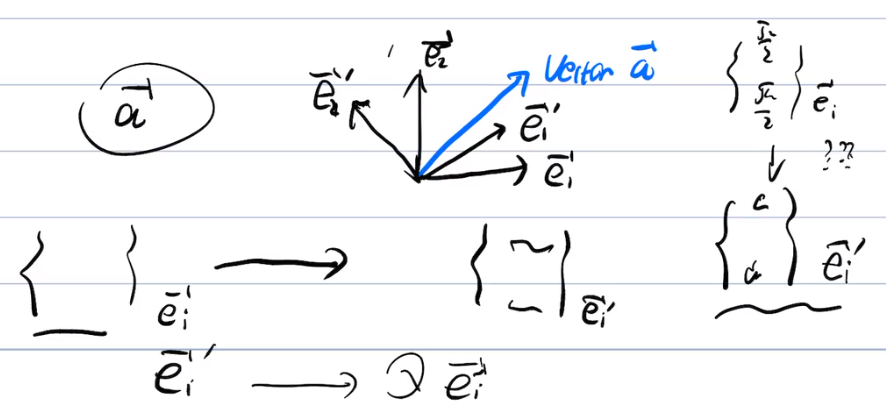 $\vec{a}$
$\vec{e}_2$
$\vec{e}_2'$
Vector $\vec{a}$
$\vec{e}_1'$
$\vec{e}_1$
$\begin{Bmatrix} \frac{\sqrt{2}}{2} \\ \frac{\sqrt{2}}{2} \end{Bmatrix} \vec{e}_i$
↓ ???
$\{ \quad \}_{\vec{e}_i}$ → $\{ \quad \}_{\vec{e}_i'}$ $\{ \quad \} \vec{e}_i'$
$\vec{e}_i'$ → Q $\vec{e}_i$